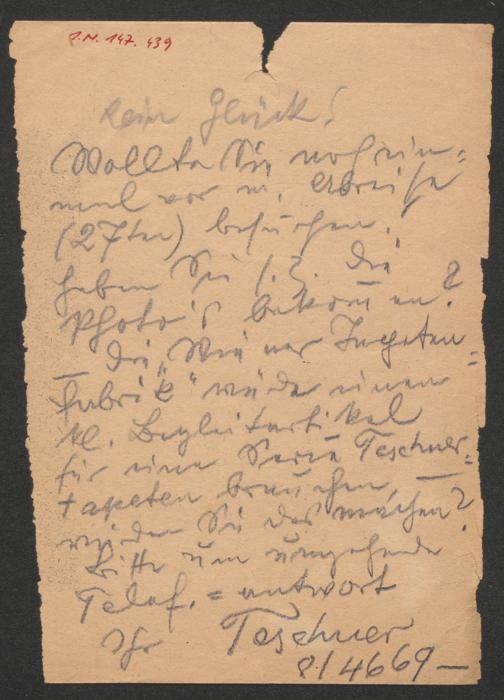 J.N. 147.439
kein Glück!
Wollte Sie noch ein=
mal vor m. Abreise
(27ten) besuchen.
Haben Sie s. Z. die
Photo's bekommen?
– Die "Wiener Tapeten=
fabrik" würde einen
kl. Begleitartikel
für eine Serie Teschner=
tapeten brauchen, –
würden Sie das machen?
Bitte um umgehende
Telef. = antwort
Ihr Teschner
8/4669 –